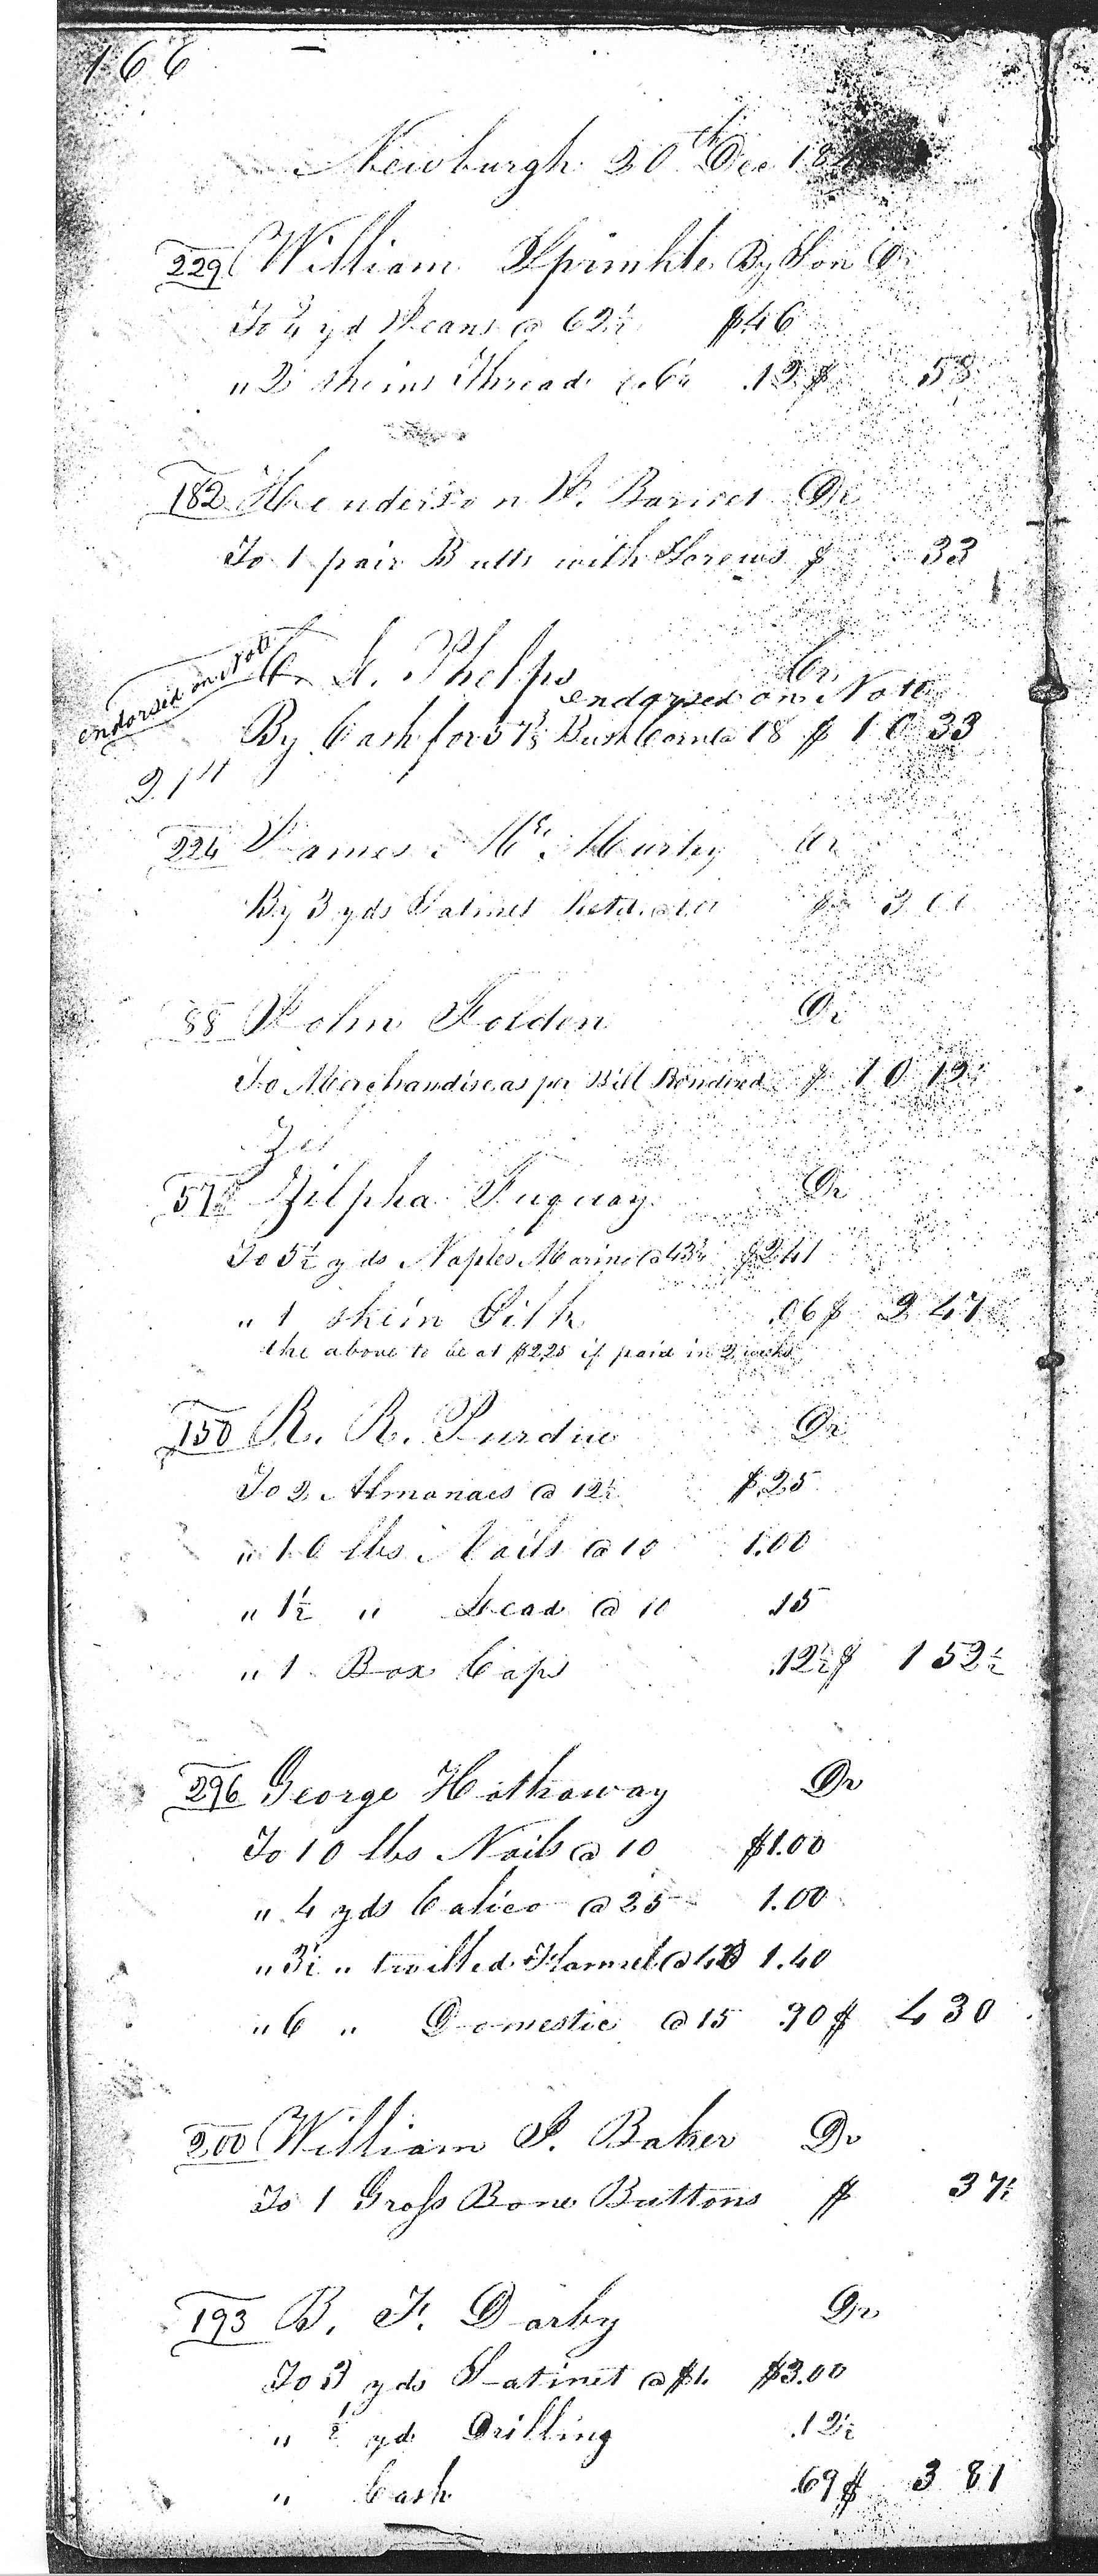 166
Newburgh 20th Dec 184
229 William Sprinkle By Son Dr
To ¾ yd Jeans @ 62½ $.46
" 2 skeins Thread @ 6¼ .12 $ 58
182 Henderson W. Barnes Dr
To 1 pair Butts with Screws $ 33
endorsed on Note
C. A. Phelps Cr
endorsed on Note
By Cash for 57⅓ Bush Corn @ 18 $ 10 33
214
224 James Mc. Murtry Cr
By 3 yds Satinet Retd. @ 1.00 $ 3 00
88 John Folden Dr
To Merchandise as per Bill Rendered $ 10 12½
Zil
57 Zilpha Fuquay Dr
To 5½ yds Naples Marino @ 43¾ $2.41
" 1 skein Silk .06 $ 2 47
the above to be at $2.25 if paid in 2 weeks
150 R. R. Purdue Dr
To 2 Almanacs @ 12½ $.25
" 10 lbs Nails @ 10 1.00
" 1½ " Lead @ 10 .15
" 1 Box Caps .12½ $ 1 52½
296 George Hathaway Dr
To 10 lbs Nails @ 10 $1.00
" 4 yds Calico @ 25 1.00
" 3½ " twilled Flannel @ 40 1.40
" 6 " Domestic @ 15 .90 $ 4 30
200 William S. Baker Dr
To 1 Gross Bone Buttons $ 37½
193 B. F. Darby Dr
To 3 yds Satinet @ $1. $3.00
" ½ yd Drilling .12½
" Cash .69 $ 3 81